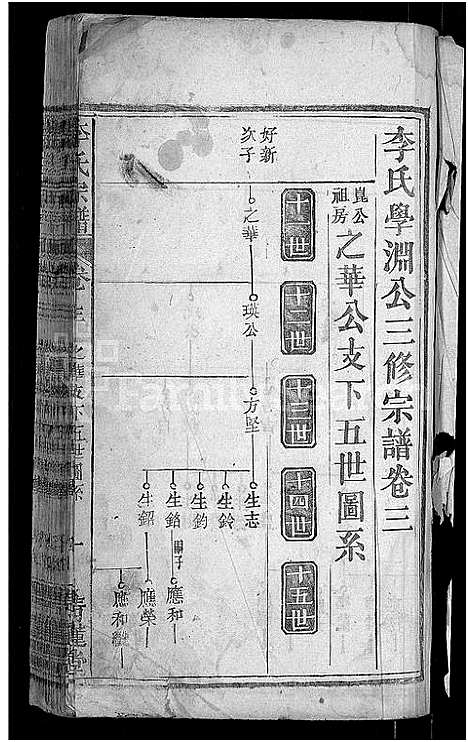 李氏學淵公三修宗譜卷三
崑公
祖房
之華公支下五世圖系
十一世
十二世
十三世
十四世
十五世
好新
次子
之華
瑛公
方堅
生志
生鈴
生鈞
生鉛
生鉊
應和
應榮
應和
李氏宗譜
卷三
之華支下五世圖系